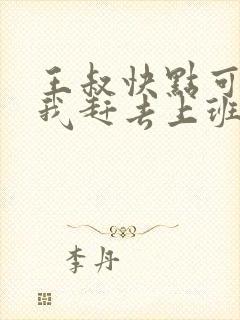 王叔快點可
我赶去上班
李丹